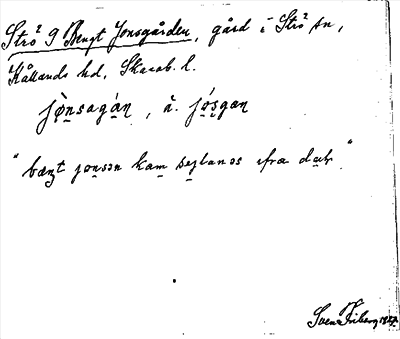 Strö 9 Bengt Jonsgården, gård i Strö sn,
Kållands hd, Skarab. l.
jǫ̀nsagán, ä. jǫ́sgan
"bæŋt jonsən kam sejlanəs ifra dah"
Sven Friberg 1927.